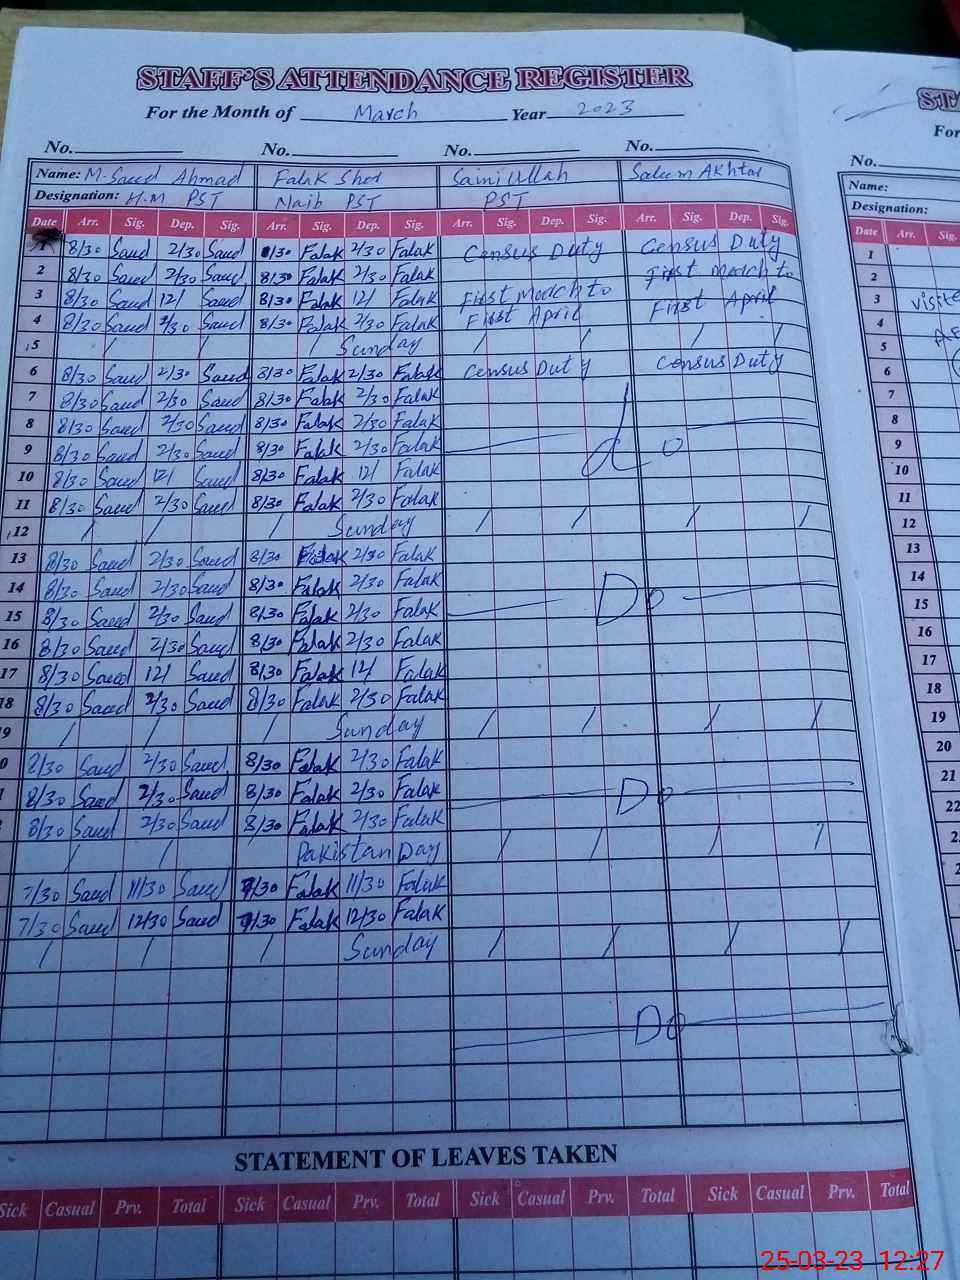 STAFF'S ATTENDANCE REGISTER
For the Month of March Year 2023
No. No. No. No.
Name: M. Saeed Ahmad Falak Sher Saini Ullah Saleem Akhtar
Designation: H.M PST Naib PST PST
Date Arr. Sig. Dep. Sig. Arr. Sig. Dep. Sig. Arr. Sig. Dep. Sig. Arr. Sig. Dep. Sig.
8/30 Saed 2/30 Saed 8/30 Falak 2/30 Falak Census Duty Census Duty
2 8/30 Saed 2/30 Saed 8/30 Falak 2/30 Falak First March to
3 8/30 Saed 12/ Saed 8/30 Falak 12/ Falak First March to First April
4 8/30 Saed 2/30 Saed 8/30 Falak 2/30 Falak First April
5 / / / Sunday / / / /
6 8/30 Saed 2/30 Saed 8/30 Falak 2/30 Falak Census Duty Census Duty
7 8/30 Saed 2/30 Saed 8/30 Falak 2/30 Falak
8 8/30 Saed 2/30 Saed 8/30 Falak 2/30 Falak
9 8/30 Saed 2/30 Saed 8/30 Falak 2/30 Falak do
10 8/30 Saed 12/ Saed 8/30 Falak 12/ Falak
11 8/30 Saed 2/30 Saed 8/30 Falak 2/30 Falak
12 / / / Sunday / / / /
13 8/30 Saed 2/30 Saed 8/30 Falak 2/30 Falak
14 8/30 Saed 2/30 Saed 8/30 Falak 2/30 Falak
15 8/30 Saed 2/30 Saed 8/30 Falak 2/30 Falak Do
16 8/30 Saed 2/30 Saed 8/30 Falak 2/30 Falak
17 8/30 Saed 12/ Saed 8/30 Falak 12/ Falak
18 8/30 Saed 2/30 Saed 8/30 Falak 2/30 Falak
9 / / / Sunday / / / /
0 8/30 Saed 2/30 Saed 8/30 Falak 2/30 Falak
8/30 Saed 2/30 Saed 8/30 Falak 2/30 Falak Do
8/30 Saed 2/30 Saed 8/30 Falak 2/30 Falak
/ / Pakistan Day / / / /
7/30 Saed 11/30 Saed 7/30 Falak 11/30 Falak
7/30 Saed 12/30 Saed 7/30 Falak 12/30 Falak
/ / / Sunday / / / /
Do
STATEMENT OF LEAVES TAKEN
Sick Casual Prv. Total Sick Casual Prv. Total Sick Casual Prv. Total Sick Casual Prv. Total
ST
For
No.
Name:
Designation:
Date Arr. Sig.
1
2
3 visite
4
5
6
7
8
9
10
11
12
13
14
15
16
17
18
19
20
21
22
2
2
25-03-23 12:27